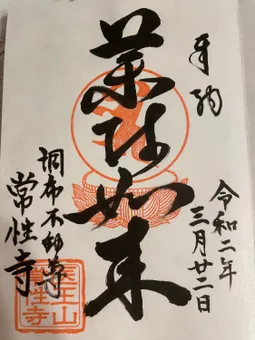 奉納
令和二年
三月廿二日
薬師如来
調布不動尊
常性寺
医王山
常性寺